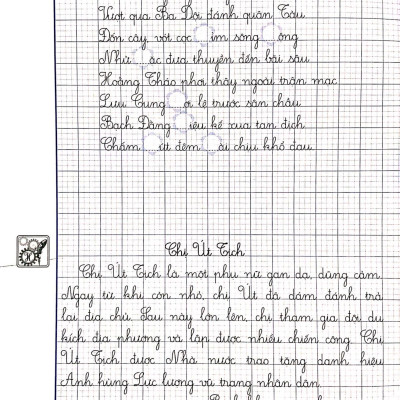 Vượt qua Ba Dội đánh quân Tàu
Đốn cây vót cọc im sông ông
Nhử ác đưa thuyền đến bãi sâu
Hoằng Tháo phơi thây ngoài trận mạc
Lưu Cung ơi lệ trước sân chầu
Bạch Đằng iêu kế xua tan địch
Chấm ứt đêm ài chịu khổ đau
Chị Út Tịch
Chị Út Tịch là một phụ nữ gan dạ, dũng cảm.
Ngay từ khi còn nhỏ, chị Út đã dám đánh trả
lại địa chủ. Sau này lớn lên, chị tham gia đội du
kích địa phương và lập được nhiều chiến công. Chị
Út Tịch được Nhà nước trao tặng danh hiệu
Anh hùng Lực lượng vũ trang nhân dân.